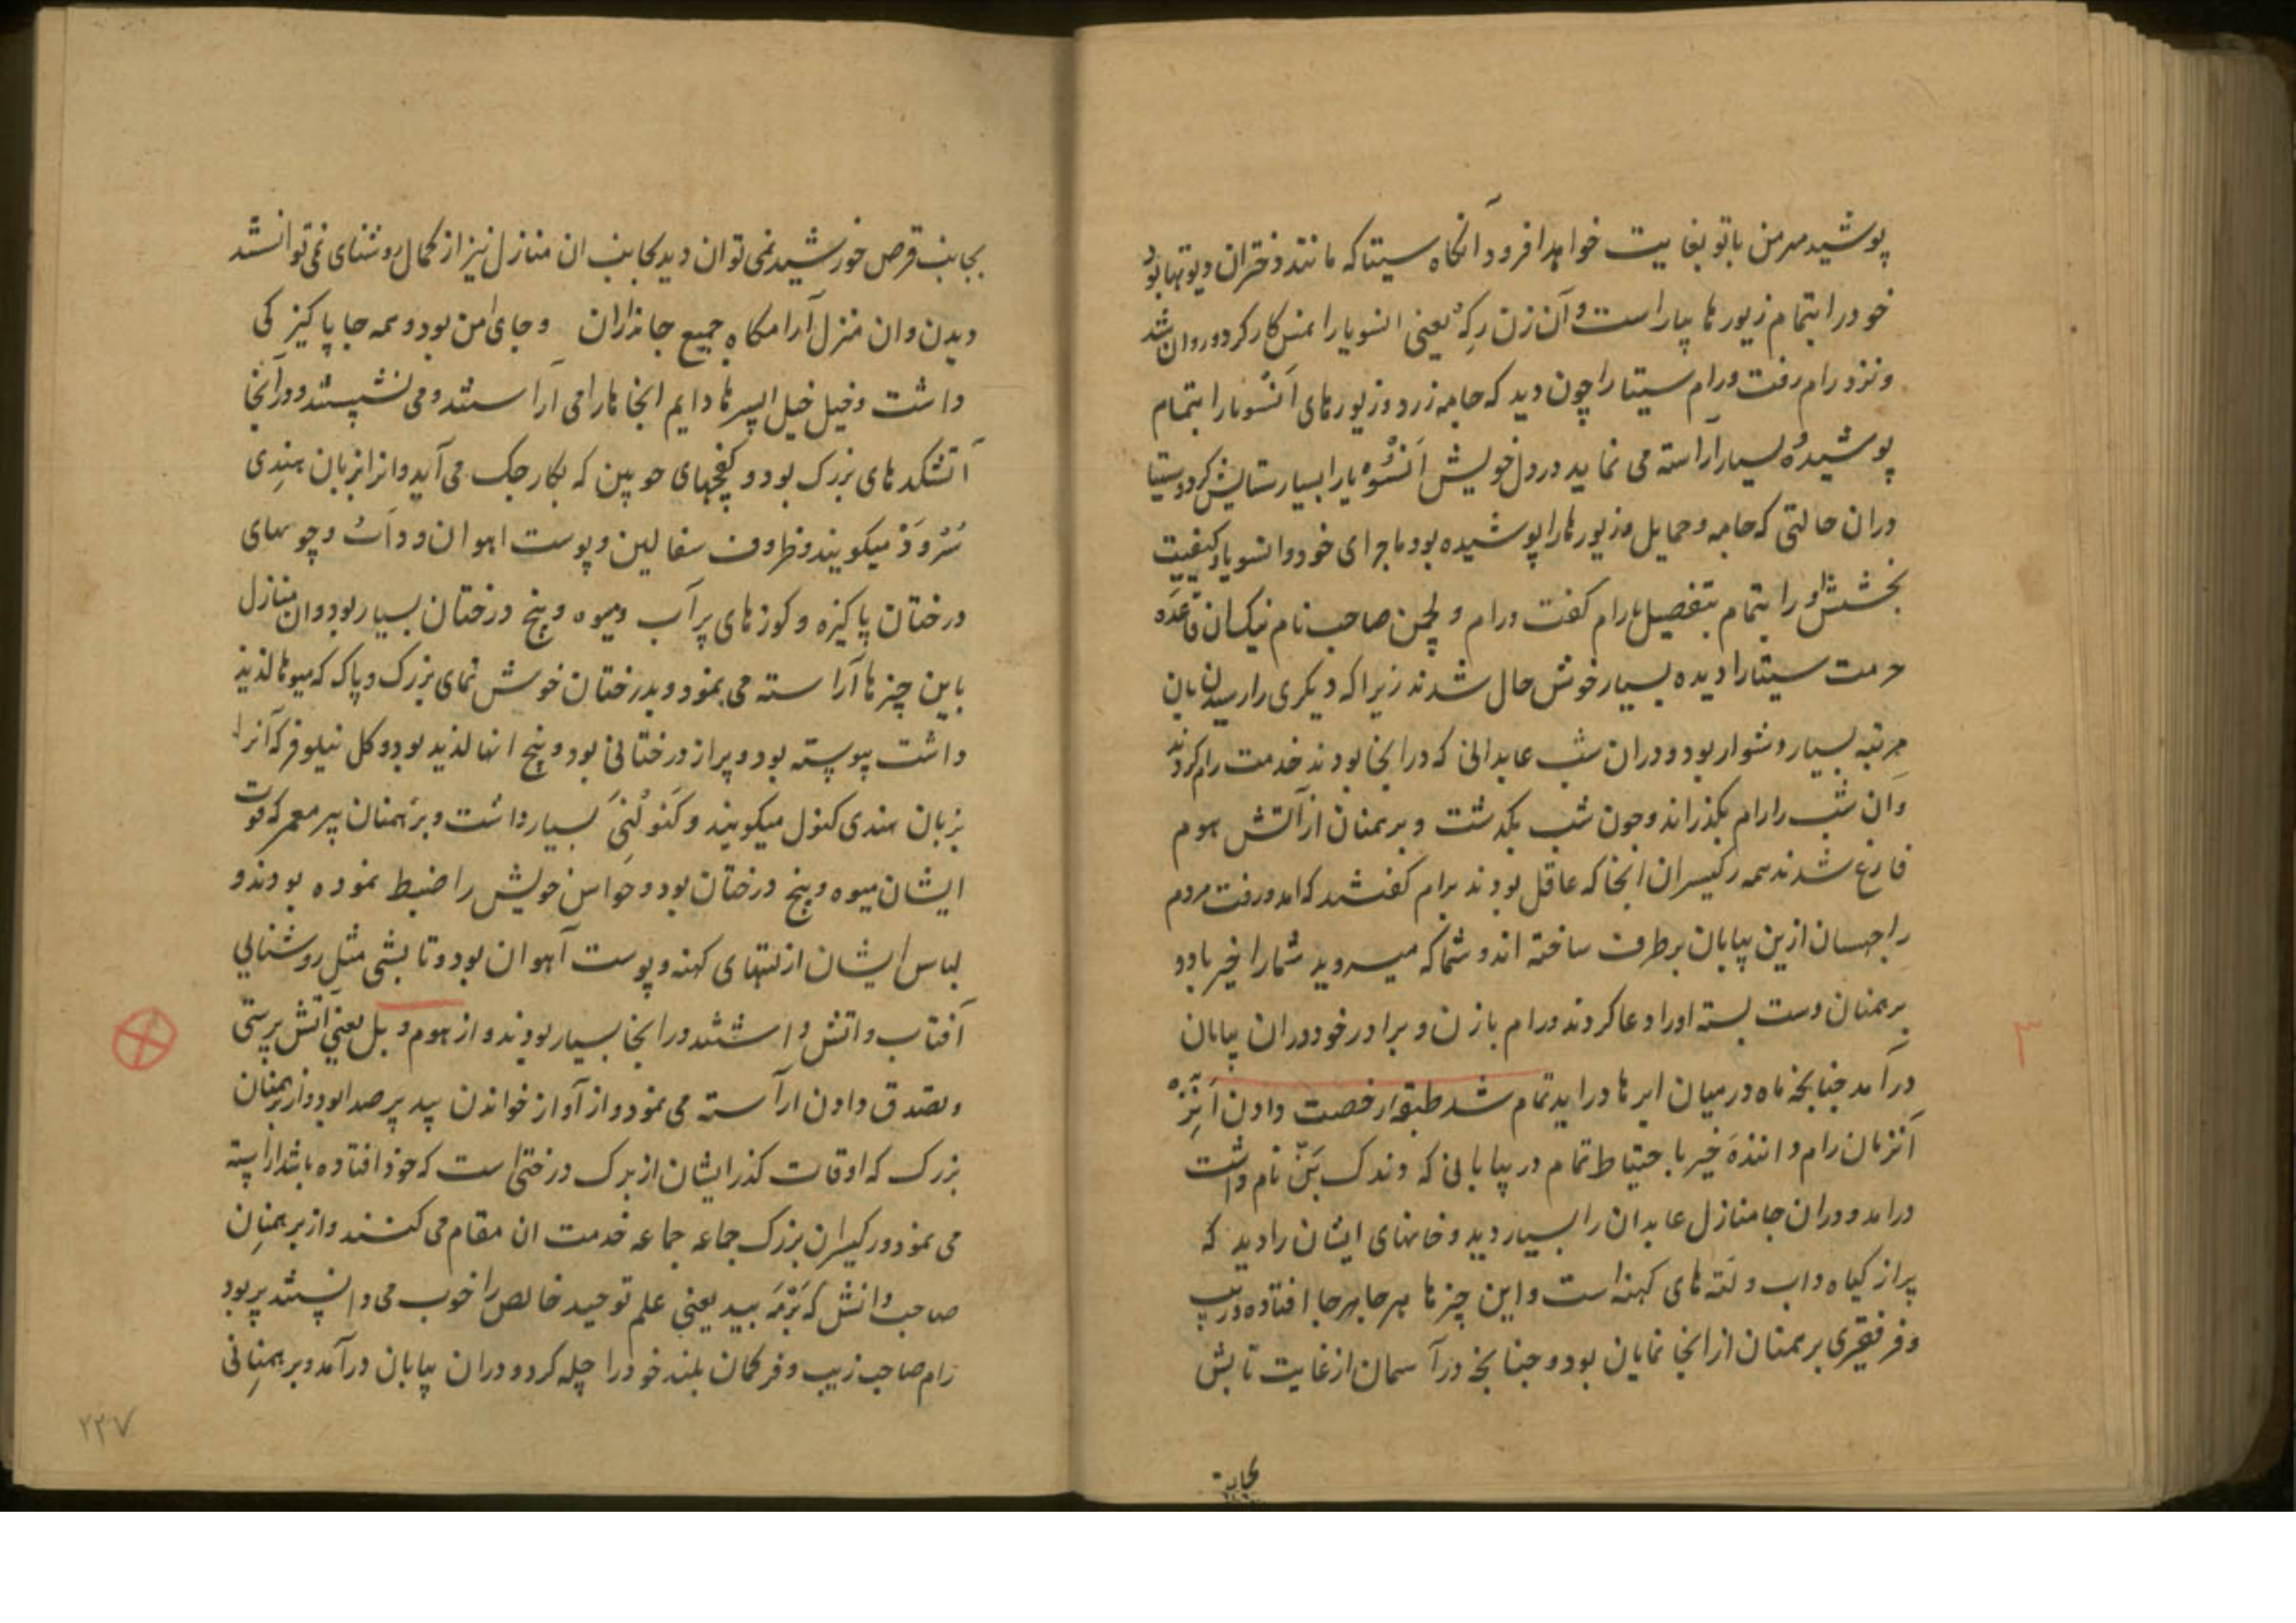 پوشید مهر من با تو بغایت خواهد افزود آنگاه سیتا که مانند دختران دیوتها بود
خود را بتمام زیورها بیاراست و آن زن رکهه یعنی انسویا را نمسکار کرد و روان شد
و نزد رام رفت و رام سیتا را چون دید که جامه زرد و زیورهای انسویا را بتمام
پوشیده بسیار آراسته می نماید در دل خویش انسویا را بسیار ستایش کرد و سیتا
دران حالتی که جامه و حمایل و زیورها را پوشیده بود ماجرای خود و انسویا و کیفیت
بخشش او را بتمام بتفصیل با رام گفت و رام و لچمن صاحب نام نیکسان قاعده
حرمت سیتا را دیده بسیار خوش حال شدند زیرا که دیگری را رسیدن بان
مرتبه بسیار دشوار بود و دران شب عابدانی که در انجا بودند خدمت رام کردند
وان شب را رام بگذراند و چون شب بگذشت و برهمنان از آتش هوم
فارغ شدند همه رکیسران انجا که عاقل بودند برام گفتند که امد و رفت مردم
راچهسان ازین بیابان برطرف ساخته اند و شما که میروید شما را خیر باد و
برهمنان دست بسته او را دعا کردند و رام با زن و برادر خود دران بیابان
درآمد چنانچه ماه در میان ابرها دراید تمام شد طبقه رخصت دادن اتره
آنزمان رام دانندۀ خیر با حتیاط تمام در بیابانی که دندک بن نام داشت
درامد و دران جا منازل عابدان را بسیار دید و خانهای ایشان را دید که
پر از گیاه داب و لته های کهنه است و این چیزها بهر جا بهر جا افتاده و زیب
و فر فقیری برهمنان از انجا نمایان بود و چنانچه در آسمان از غایت تابش
بجانب
بجانب قرص خورشید نمی توان دید بجانب ان منازل نیز از کمال روشنای نمی توانستند
دیدن و ان منزل آرامگاه جمیع جانداران و جای امن بود و همه جا پاکیزکی
داشت و خیل خیل اپسرها دایم انجاها را می آراستند و می نشستند و در آنجا
آتشکدهای بزرک بود و کفچهای چوبین که بکار جک می آید و انرا بزبان هندی
سروَ میکویند و ظروف سفالین و پوست اهوان و داب و چوبهای
درختان پاکیزه و کوزهای پر آب و میوه و بیخ درختان بسیار بود و ان منازل
باین چیزها آراسته می نمود و بدرختان خوش نمای بزرک و پاک که میوها لذیذ
داشت پیوسته بود و پر از درختانی بود و بیخ انها لذیذ بود و کل نیلوفر که آنرا
بزبان هندی کنول میکویند و کنولنی بسیار داشت و برهمنان پیر معمر که قوت
ایشان میوه و بیخ درختان بود و حواس خویش را ضبط نموده بودند و
لباس ایشان از لتهای کهنه و پوست آهوان بود و تابشی مثل روشنایی
آفتاب و اتش داشتند در انجا بسیار بودند و از هوم و بل یعنی آتش پرستی
و تصدق دادن اراسته می نمود و از آواز خواندن بید پر صدا بود و از برهمنان
بزرک که اوقات کذر ایشان از برک درختی است که خود افتاده باشد اراسته
می نمود و رکیسران بزرک جماعه جماعه خدمت ان مقام می کنند و از برهمنان
صاحب دانش که برمه بید یعنی علم توحید خالص را خوب می دانستند پر بود
رام صاحب زیب و فر کمان بلند خود را چله کرد و دران بیابان درآمد و برهمنانی
۲۳۷
۳